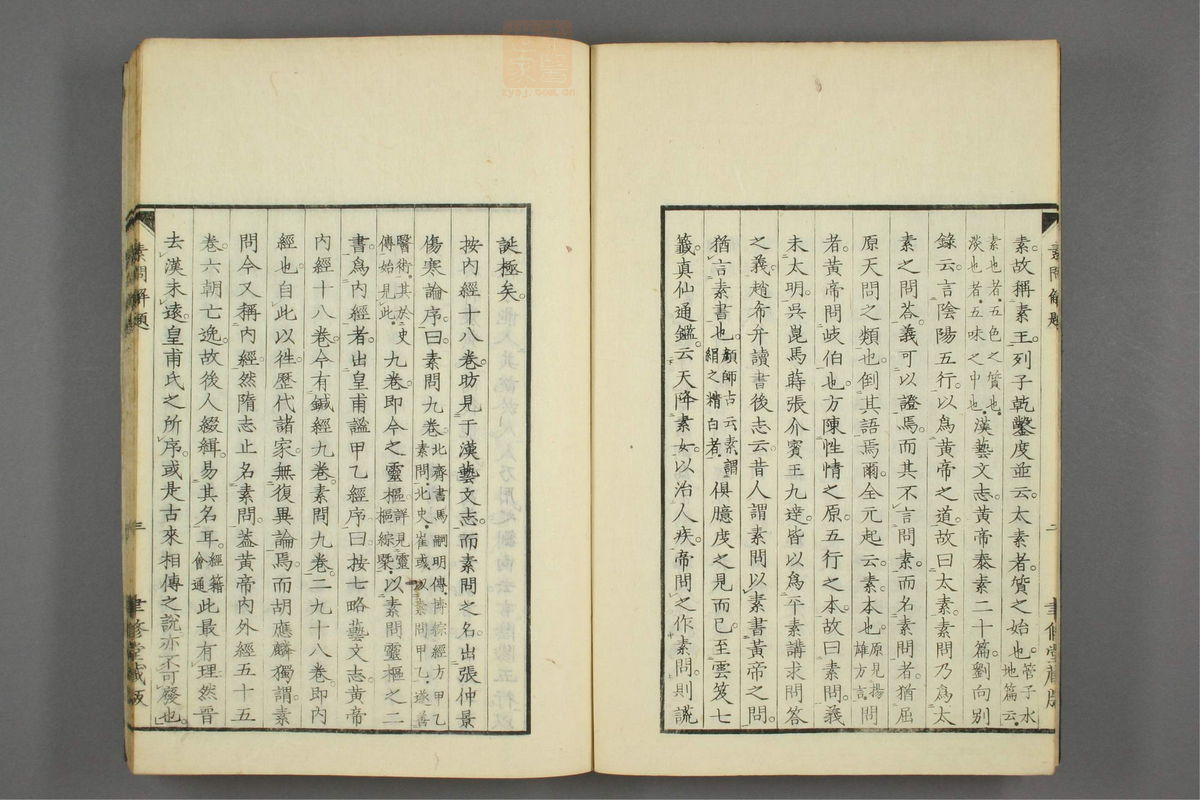 素故稱素王列子乾鑿度並云太素者質之始也管子水地篇云
素也者五色之質也淡也者五味之中也漢藝文志黃帝泰素二十篇劉向別
錄云言陰陽五行以爲黃帝之道故曰太素素問乃爲太
素之問答義可以證焉而其不言問素而名素問者猶屈
原天問之類也倒其語焉爾全元起云素本也原見揚雄方言問
者黃帝問岐伯也方陳性情之原五行之本故曰素問義
未太明吳崑馬蒔張介賓王九達皆以爲平素講求問答
之義趙希弁讀書後志云昔人謂素問以素書黃帝之問
猶言素書也顏師古云素謂絹之精白者俱臆度之見而已至雲笈七
籤真仙通鑑云天降素女以治人疾帝問之作素問則謊
素問解題
二
聿修堂藏版
誕極矣
按內經十八卷昉見于漢藝文志而素問之名出張仲景
傷寒論序曰素問九卷北齊書馬嗣明傳博綜經方甲乙素問北史崔彧以素問甲乙遂善
醫術其於史傳始見此九卷即今之靈樞詳見靈樞綜槩以素問靈樞之二
書爲內經者出皇甫謐甲乙經序曰按七略藝文志黃帝
內經十八卷今有鍼經九卷素問九卷二九十八卷即內
經也自此以徃歷代諸家無復異論焉而胡應麟獨謂素
問今又稱內經然隋志止名素問葢黃帝內外經五十五
卷六朝亡逸故後人綴緝易其名耳經籍會通此最有理然晉
去漢未遠皇甫氏之所序或是古來相傳之說亦不可廢也
素問解題
三
聿修堂藏版
zysj.com.cn